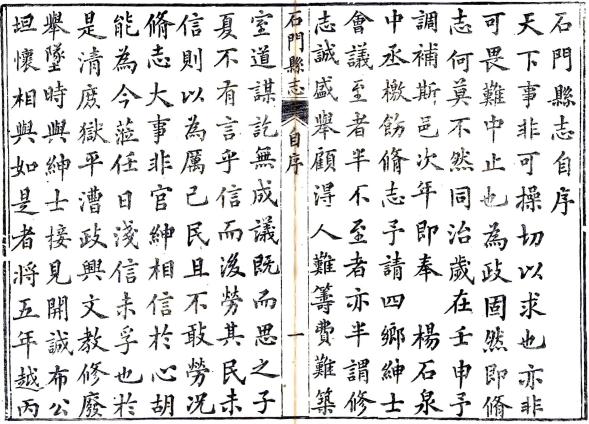 石門縣志自序
天下事非可操切以求也亦非
可畏難中止也為政固然即脩
志何莫不然同治歲在壬申予
調補斯邑次年即奉 楊石泉
中丞檄飭脩志予請四鄉紳士
會議至者半不至者亦半謂修
志誠盛舉顧得人難籌費難築
石門縣志 自序 一
室道謀訖無成議既而思之子
夏不有言乎信而後勞其民未
信則以為厲己民且不敢勞况
脩志大事非官紳相信於心胡
能為今蒞任日淺信未孚也於
是清庶獄平漕政興文教修廢
舉墜時與紳士接見開誠布公
坦懷相與如是者將五年越丙